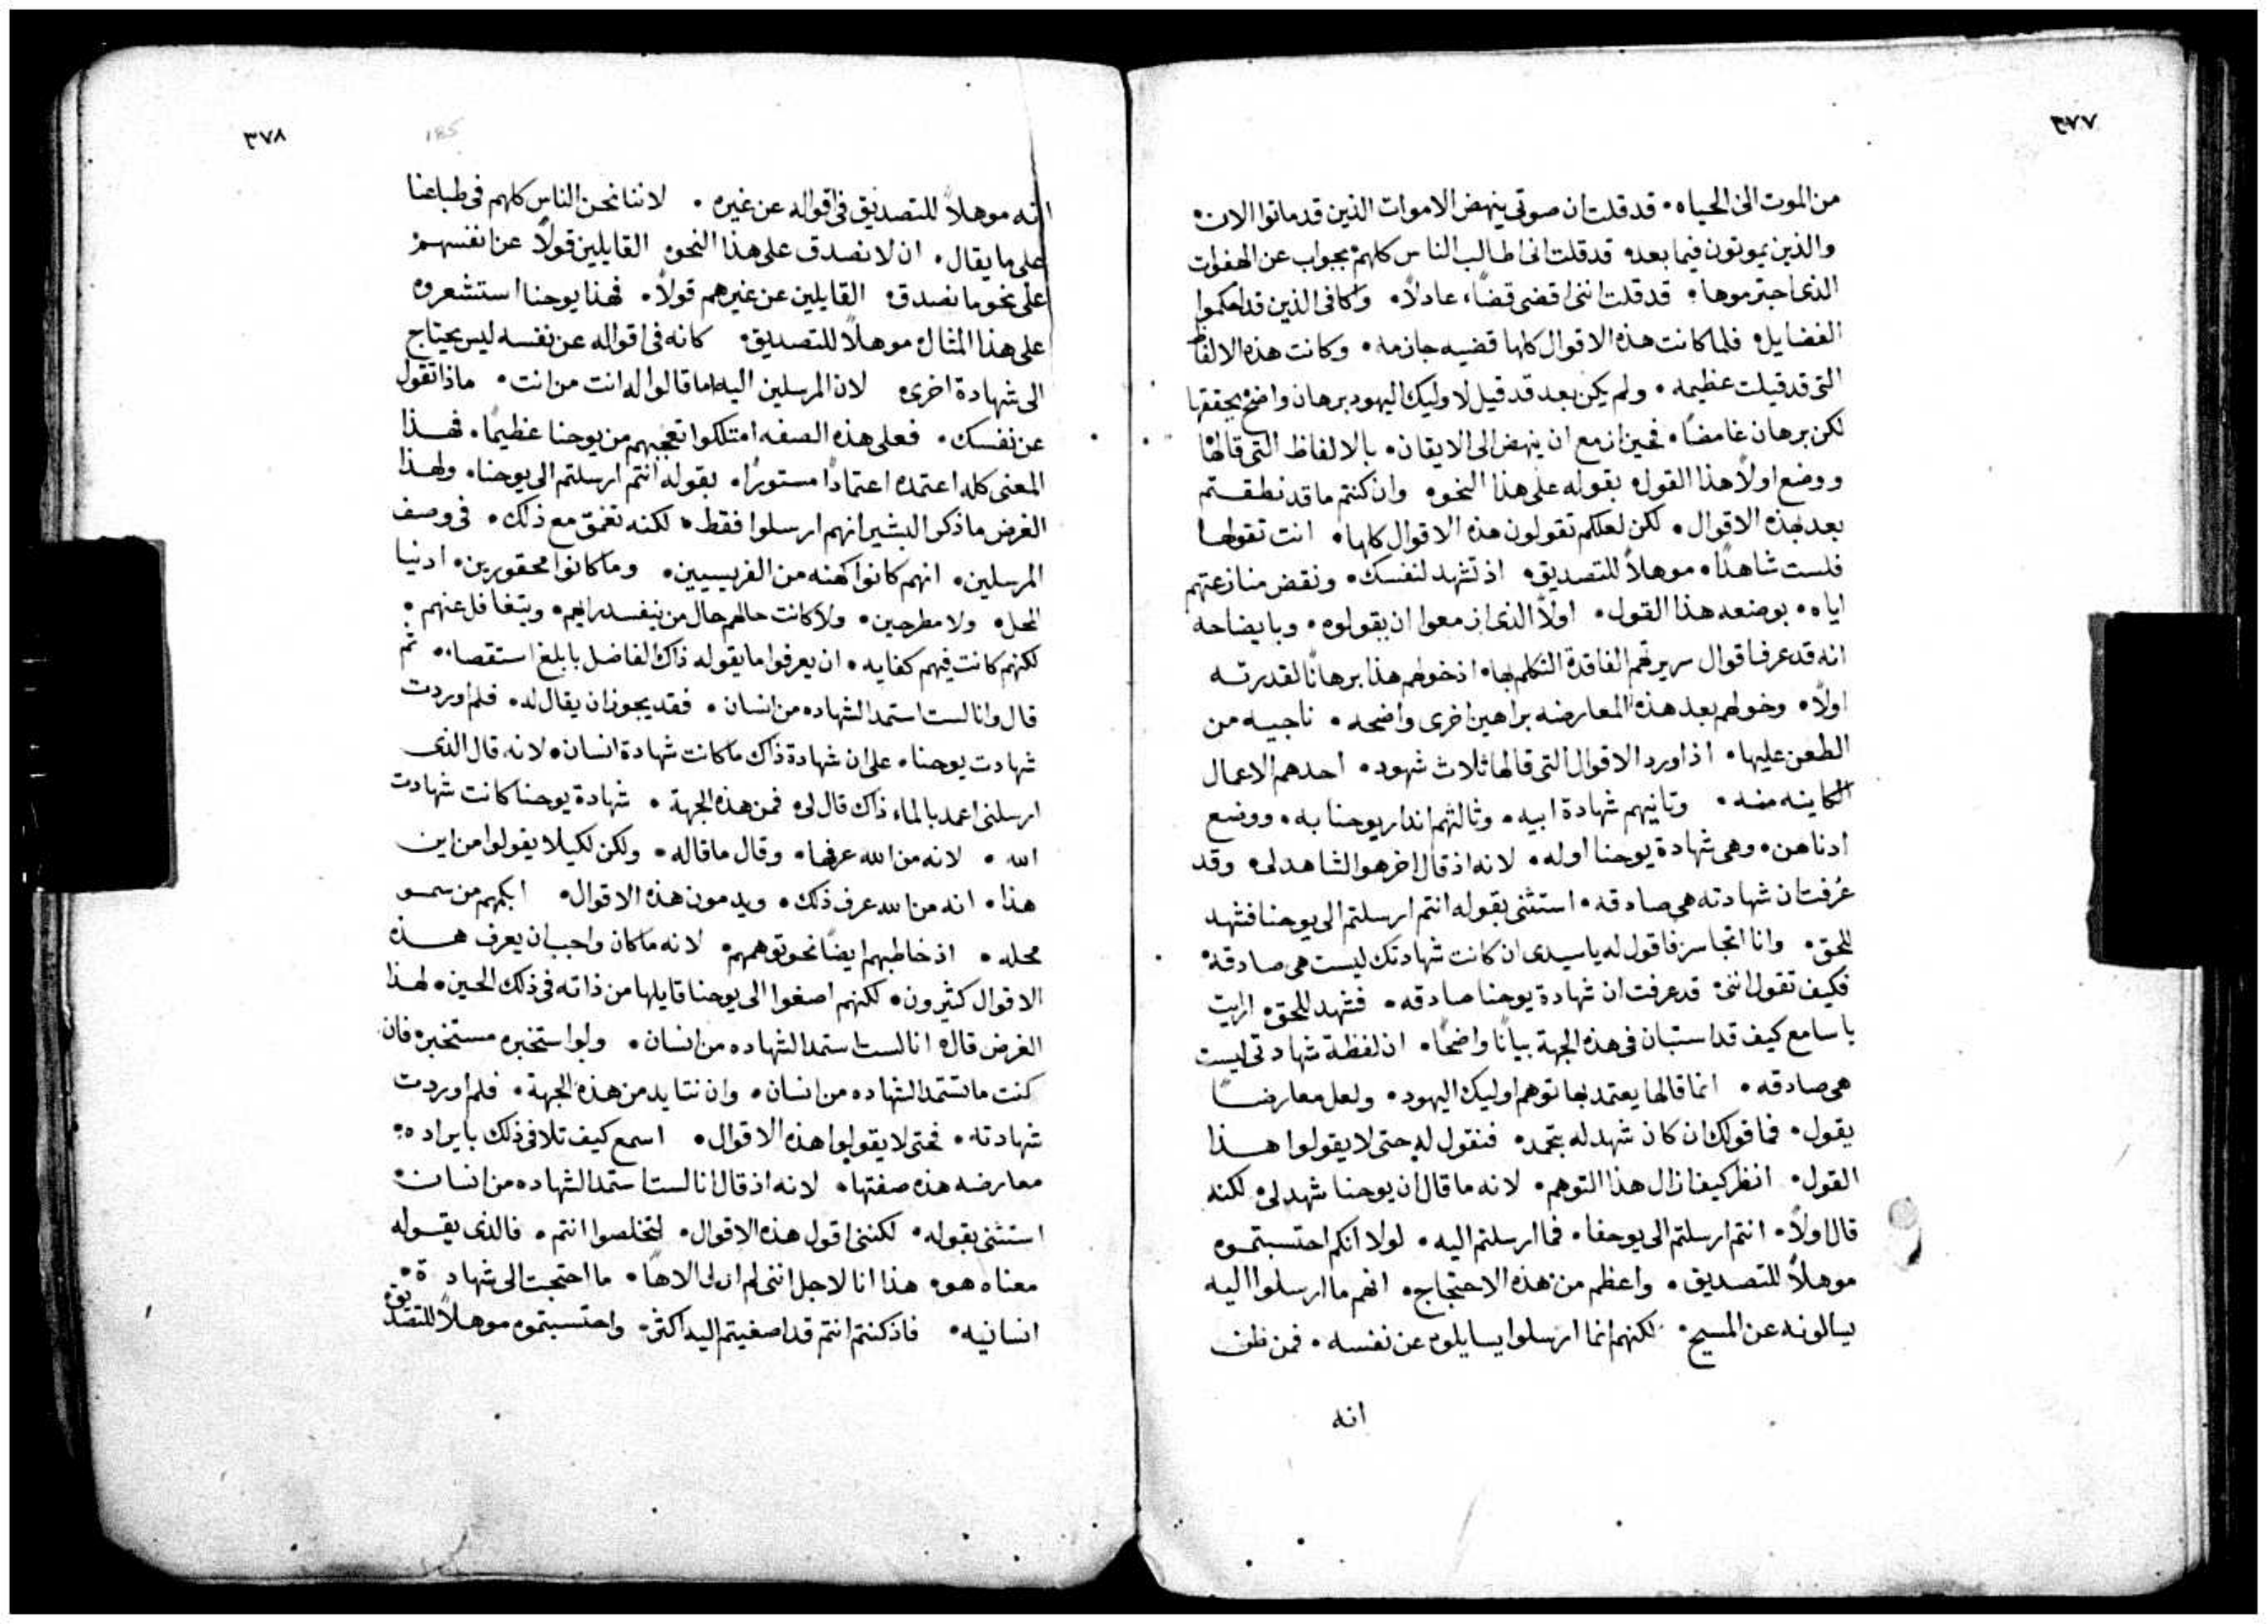 ٣٧٧
من الموت الى الحياه • قد قلت ان صوتي ينهض الاموات الذين قد ماتوا الان •
والذين يموتون فيما بعده قد قلت انى اطالب الناس كلهم بجواب عن الهفوات
الذى اجترموها • قد قلت اننى اقضى قضاً عادلاً • واكافى الذين قد احكموا
الفضايل • فلما كانت هذه الاقوال كلها قضيه جازمه • وكانت هذه الالفاظ
التى قد قيلت عظيمه • ولم يكن بعد قد قيل لاوليك اليهود برهان واضح يحققها
لكن برهان غامضاً • فحين ازمع ان ينهض الى الايقان • بالالفاظ التى قالها
ووضع اولاً هذا القول • بقوله على هذا النحو • وان كنتم ما قد نطقتم
بعد بهذه الاقوال • لكن لعلكم تقولون هذه الاقوال كلها • انت تقولها
فلست شاهداً • موهلاً للتصديق • اذ تشهد لنفسك • ونقض منازعتهم
اياه • بوضعه هذا القول • اولاً الذى ازمعوا ان يقولوه • وبايضاحه
انه قد عرف اقوال سريرتهم الفاقدة التكلم بها • اذ خولهم هذا برهاناً لقدرته
اولاً • وخولهم بعد هذه المعارضه براهين اخرى واضحه • ناجيه من
الطعن عليها • اذ اورد الاقوال التى قالها ثلاث شهود • احدهم الاعمال
الكاينه منه • وثانيهم شهادة ابيه • وثالثهم انذار يوحنا به • ووضع
ادناهن • وهى شهادة يوحنا اوله • لانه اذ قال اخر هو الشاهد لى • وقد
عُرفت ان شهادته هى صادقه • استثنى بقوله انتم ارسلتم الى يوحنا فشهد
للحق • وانا اتجاسر فاقول له يا سيدى ان كانت شهادتك ليست هى صادقة •
فكيف تقول اننى • قد عرفت ان شهادة يوحنا صادقه • فشهد للحق • ارايت
يا سامع كيف قد استبان فى هذه الجهة بياناً واضحاً • ان لفظة شهادتى ليست
هى صادقه • انما قالها يعتمد بها توهم اوليك اليهود • ولعل معارضاً
يقول • فما قولك ان كان شهد له بتحمد • فنقول له حتى لا يقولوا هذا
القول • انظر كيف ازال هذا التوهم • لانه ما قال ان يوحنا شهد لى • لكنه
قال اولاً • انتم ارسلتم الى يوحنا • فما ارسلتم اليه • لولا انكم احتسبتموه
موهلاً للتصديق • واعظم من هذه الاحتجاج • انهم ما ارسلوا اليه
يسالونه عن المسيح • لكنهم انما ارسلوا يسايلوه عن نفسه • فمن ظن
انه
٣٧٨
185
انه موهلاً للتصديق فى اقواله عن غيره • لاننا نحن الناس كلهم فى طباعنا
على ما يقال • ان لا نصدق على هذا النحو • القايلين قولاً عن انفسهم
على نحو ما نصدق • القايلين عن غيرهم قولاً • فهذا يوحنا استشعروه
على هذا المثال • موهلاً للتصديق • كانه فى اقواله عن نفسه ليس يحتاج
الى شهادة اخرى • لان المرسلين اليه ما قالوا له انت من انت • ماذا تقول
عن نفسك • فعلى هذه الصفه امتلكوا تعجبهم من يوحنا عظيماً • فهذا
المعنى كله اعتمده اعتماداً مستوراً • بقوله انتم ارسلتم الى يوحنا • ولهذا
الغرض ما ذكر البشير انهم ارسلوا فقط • لكنه تعمق مع ذلك • فى وصف
المرسلين • انهم كانوا كهنه من الفريسيين • وما كانوا محقورين • ادنيا
المحل • ولا مطرحين • ولا كانت حالهم حال من ينفسد رايهم • ويتغافل عنهم •
لكنهم كانت فيهم كفايه • ان يعرفوا ما يقوله ذاك الفاضل بابلغ استقصاء • ثم
قال وانا لست استمد الشهاده من انسان • فقد يجوز ان يقال له • فلم اوردت
شهادت يوحنا • على ان شهادة ذاك ما كانت شهادة انسان • لانه قال الذى
ارسلنى اعمد بالماء ذاك قال لى • فمن هذه الجهة • شهادة يوحنا كانت شهادت
الله • لانه من الله عرفها • وقال ما قاله • ولكن لكيلا يقولوا من اين
هذا • انه من الله عرف ذلك • ويدمون هذه الاقوال • ابكمهم من سمو
محله • اذ خاطبهم ايضاً نحو توهمهم • لانه ما كان واجب ان يعرف هذه
الاقوال كثيرون • لكنهم اصغوا الى يوحنا قايلها من ذاته فى ذلك الحين • لهذا
الغرض قال • انا لست استمد الشهاده من انسان • ولو استخبره مستخبره فان
كنت ما تستمد الشهاده من انسان • وان تتايد من هذه الجهة • فلم اوردت
شهادته • فحتى لا يقولوا هذه الاقوال • اسمع كيف تلافى ذلك بايراده •
معارضه هذه صفتها • لانه اذ قال انا لست استمد الشهاده من انسان •
استثنى بقوله • لكننى اقول هذه الاقوال • لتخلصوا انتم • فالذى يقوله
معناه هو • هذا انا لاجل اننى لم ازل الاهاً • ما احتجت الى شهادة •
انسانيه • فاذ كنتم انتم قد اصغيتم اليه اكثر • واحتسبتموه موهلاً للتصديق